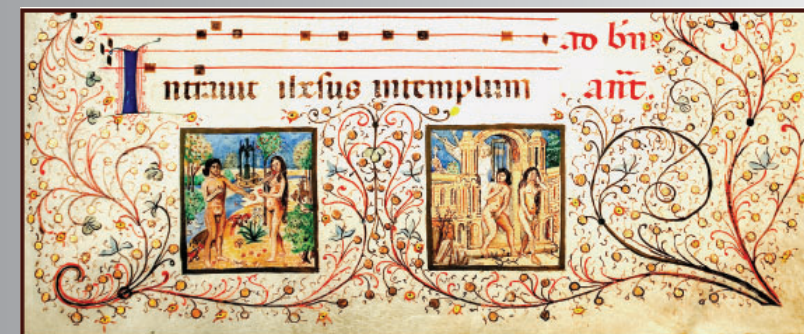 ad bn̄.
Intrauit ihesus intemplum . ant̄.